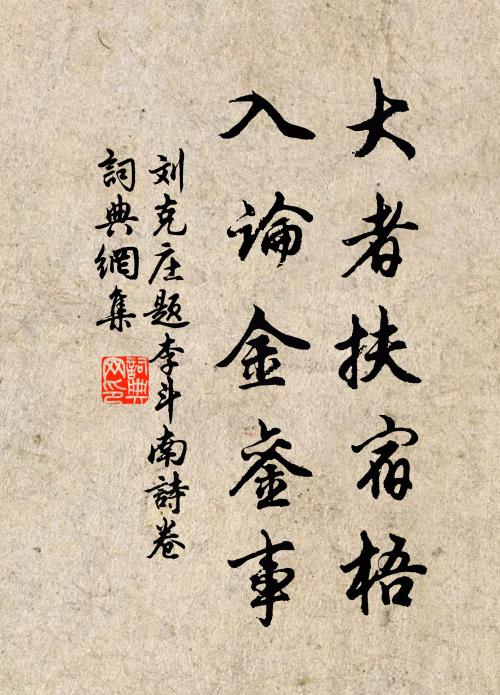 大者扶宿梧
入論金銮事
刘克庄题李斗南詩卷
詞典網集
詞典
网印